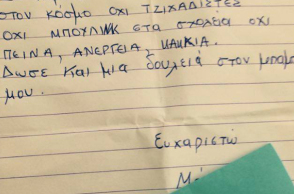 στον κόσμο όχι τζιχαδιστες
όχι μπουλινκ στα σχολεία όχι
πεινα, ανεργεια, κακκια.
Δωσε και μια δουλειά στον μπαμπ
μου.
Ευχαριστώ
Μ